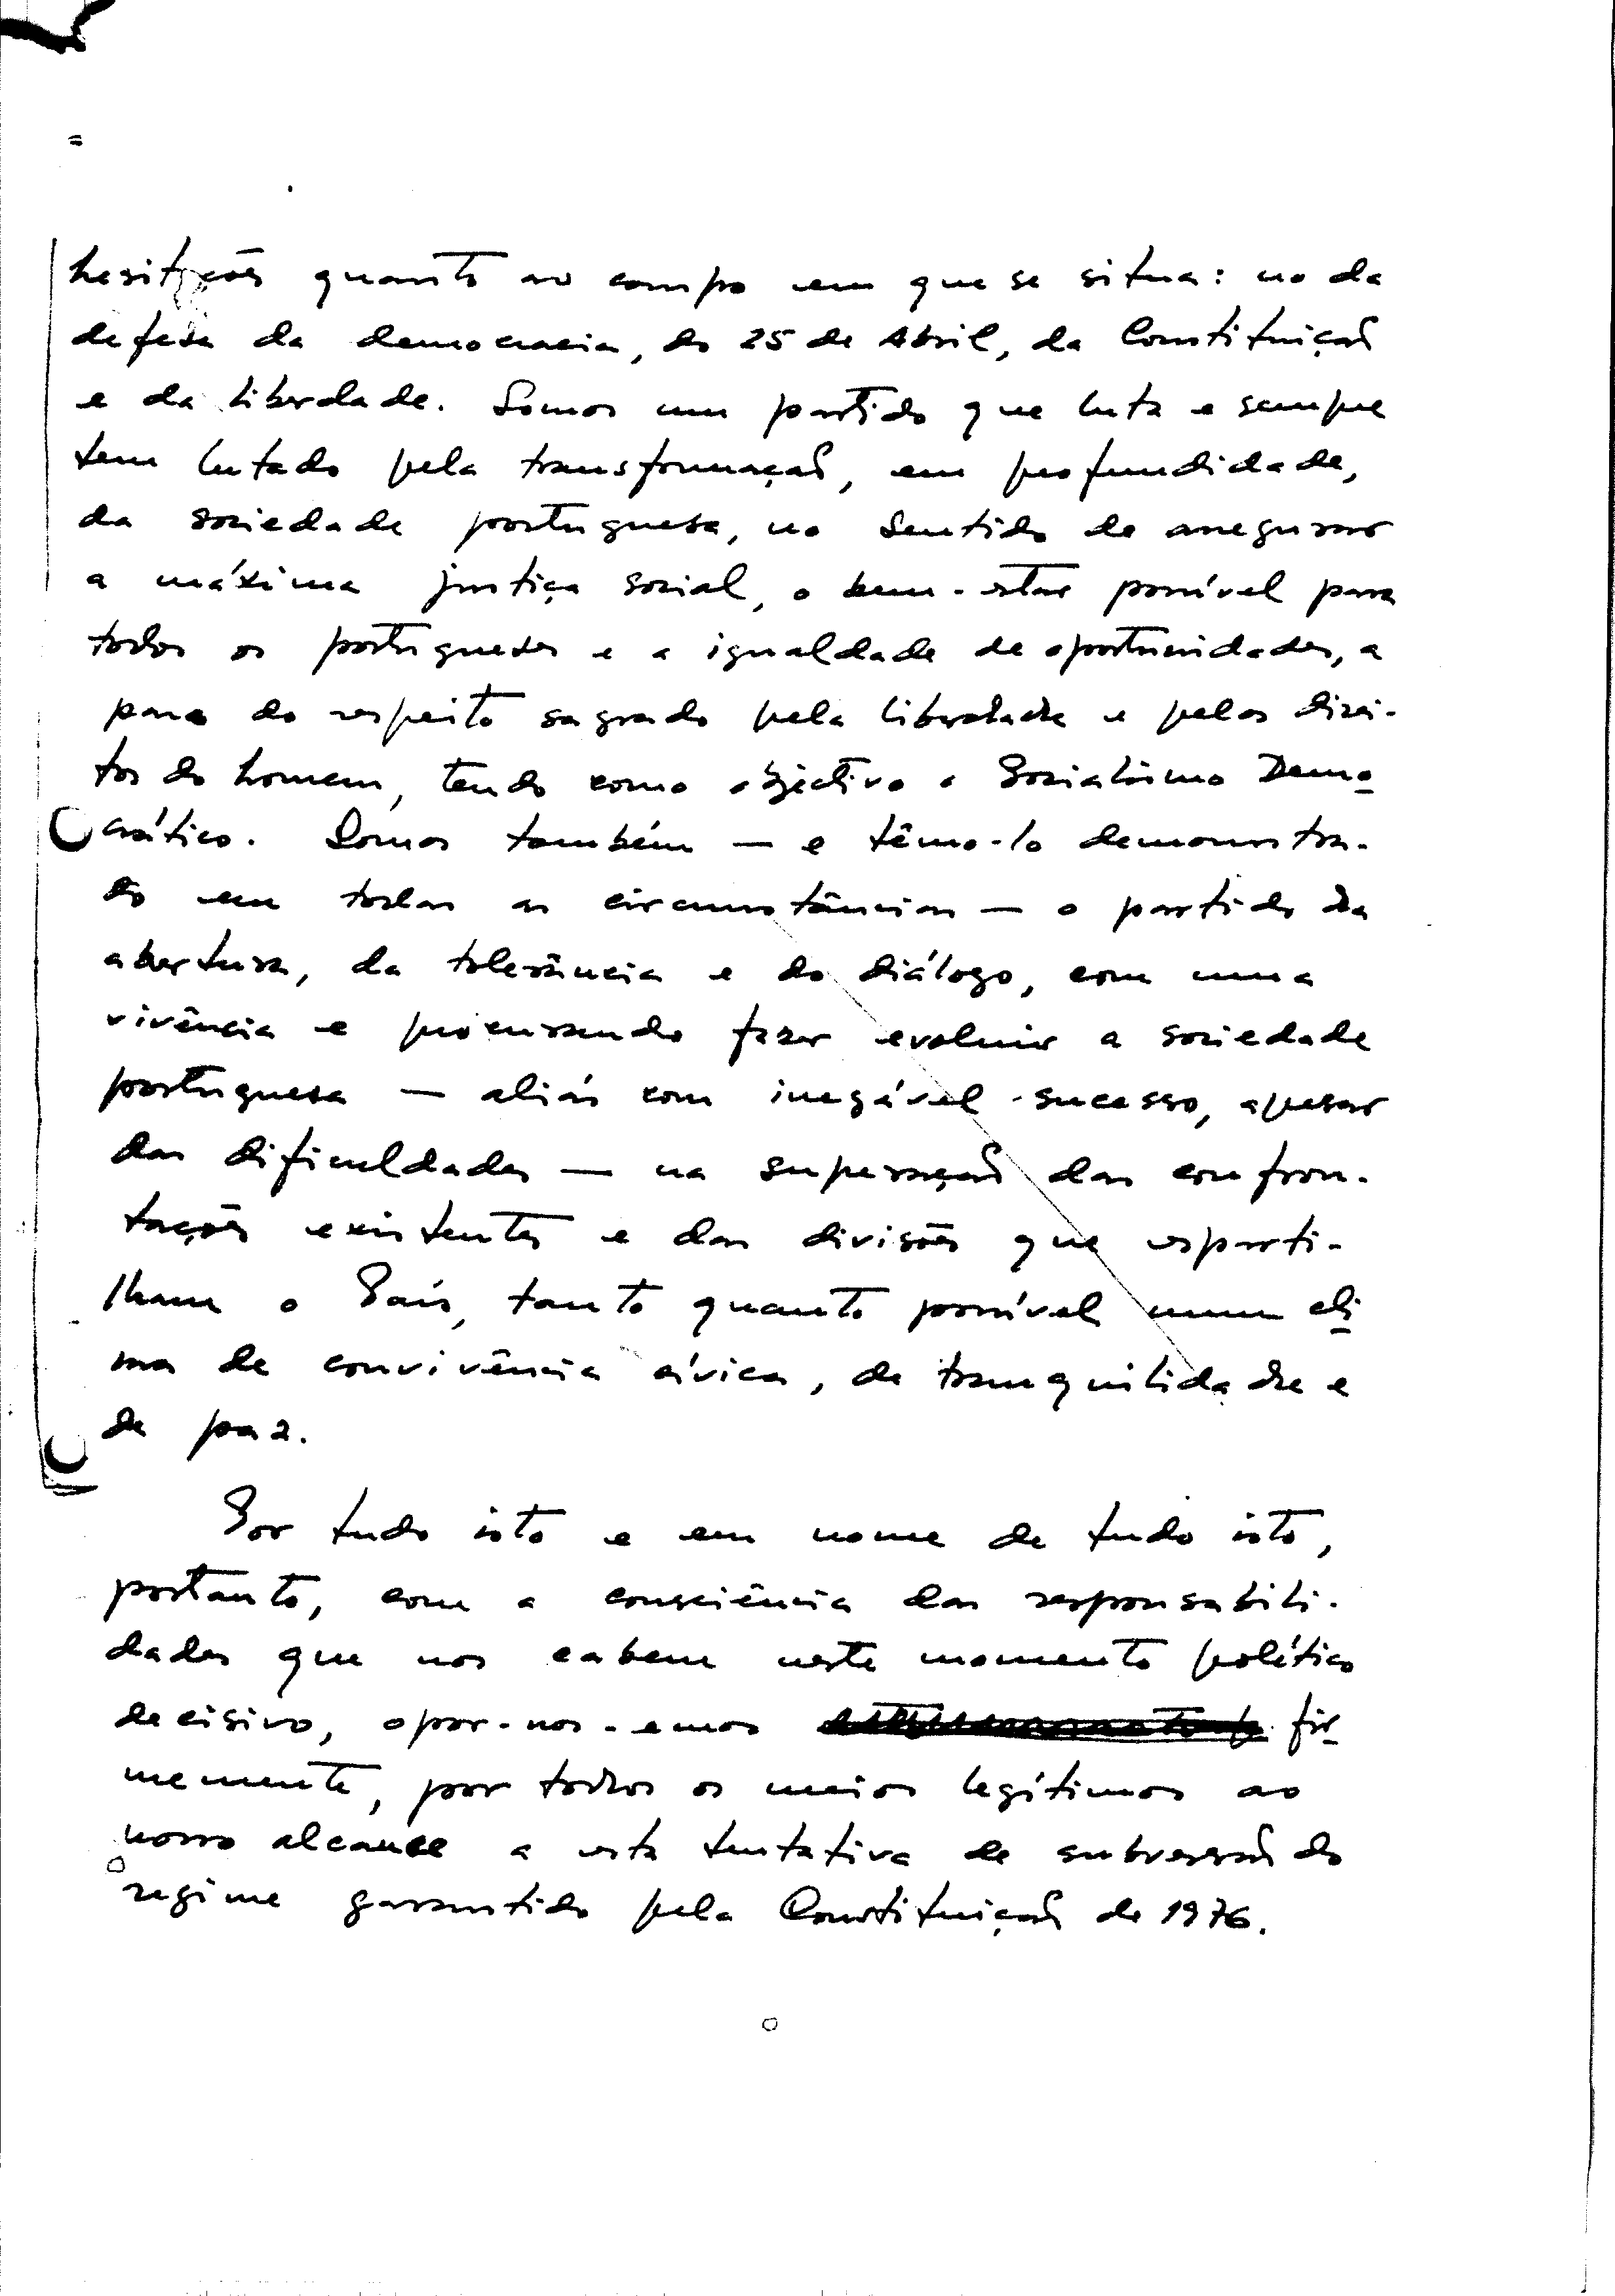 hesitações quanto ao campo em que se situa: no da
defesa da democracia, do 25 de Abril, da Constituição
e da liberdade. Somos um partido que luta e sempre
tem lutado pela transformação, em profundidade,
da sociedade portuguesa, no sentido de assegurar
a máxima justiça social, o bem-estar possível para
todos os portugueses e a igualdade de oportunidades, a
para do respeito sagrado pela liberdade e pelos direi-
tos do homem, tendo como objectivo o Socialismo Demo
crático. Somos também — e têmo-lo demonstra-
do em todas as circunstâncias — o partido da
abertura, da tolerância e do diálogo, com uma
vivência e procurando fazer evoluir a sociedade
portuguesa — aliás com inegável sucesso, apesar
das dificuldades — na superação das confron-
tações existentes e das divisões que esparti-
lham o País, tanto quanto possível num cli
ma de convivência cívica, de tranquilidade e
de paz.
Por tudo isto e em nome de tudo isto,
portanto, com a consciência das responsabili-
dades que nos cabem neste momento político
decisivo, opor-nos-emos fir
memente, por todos os meios legítimos ao
nosso alcance a esta tentativa de subversão do
regime garantido pela Constituição de 1976.